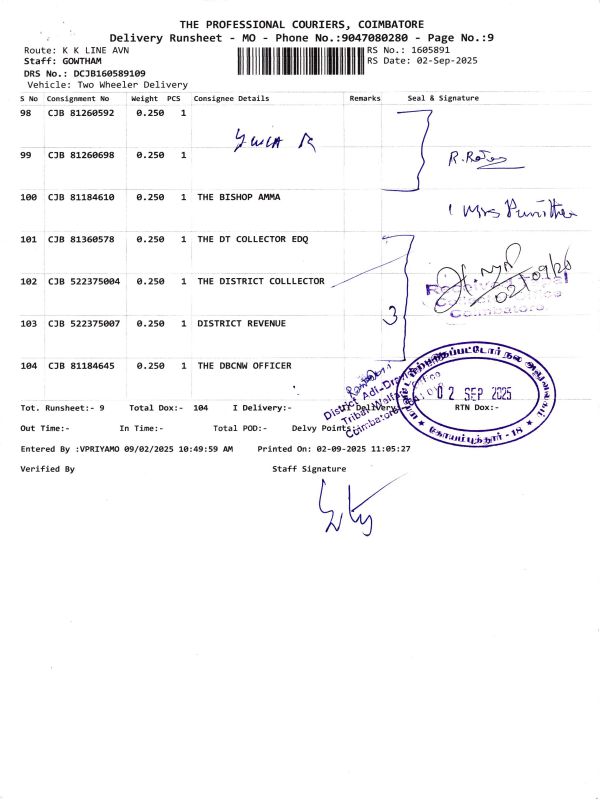 THE PROFESSIONAL COURIERS, COIMBATORE
Delivery Runsheet - MO - Phone No.:9047080280 - Page No.:9
Route: K K LINE AVN
RS No.: 1605891
Staff: GOWTHAM
RS Date: 02-Sep-2025
DRS No.: DCJB160589109
Vehicle: Two Wheeler Delivery
S No Consignment No Weight PCS Consignee Details Remarks Seal & Signature
98 CJB 81260592 0.250 1
99 CJB 81260698 0.250 1
100 CJB 81184610 0.250 1 THE BISHOP AMMA
101 CJB 81360578 0.250 1 THE DT COLLECTOR EDQ
102 CJB 522375004 0.250 1 THE DISTRICT COLLLECTOR
3
Coimbatore.
103 CJB 522375007 0.250 1 DISTRICT REVENUE
104 CJB 81184645 0.250 1 THE DBCNW OFFICER
02 SEP 2025
கோயம்புத்தூர் - 18
Tot. Runsheet:- 9 Total Dox:- 104 I Delivery:- II Delivery:- RTN Dox:-
Out Time:- In Time:- Total POD:- Delvy Points:-
Entered By :VPRIYAMO 09/02/2025 10:49:59 AM Printed On: 02-09-2025 11:05:27
Verified By Staff Signature